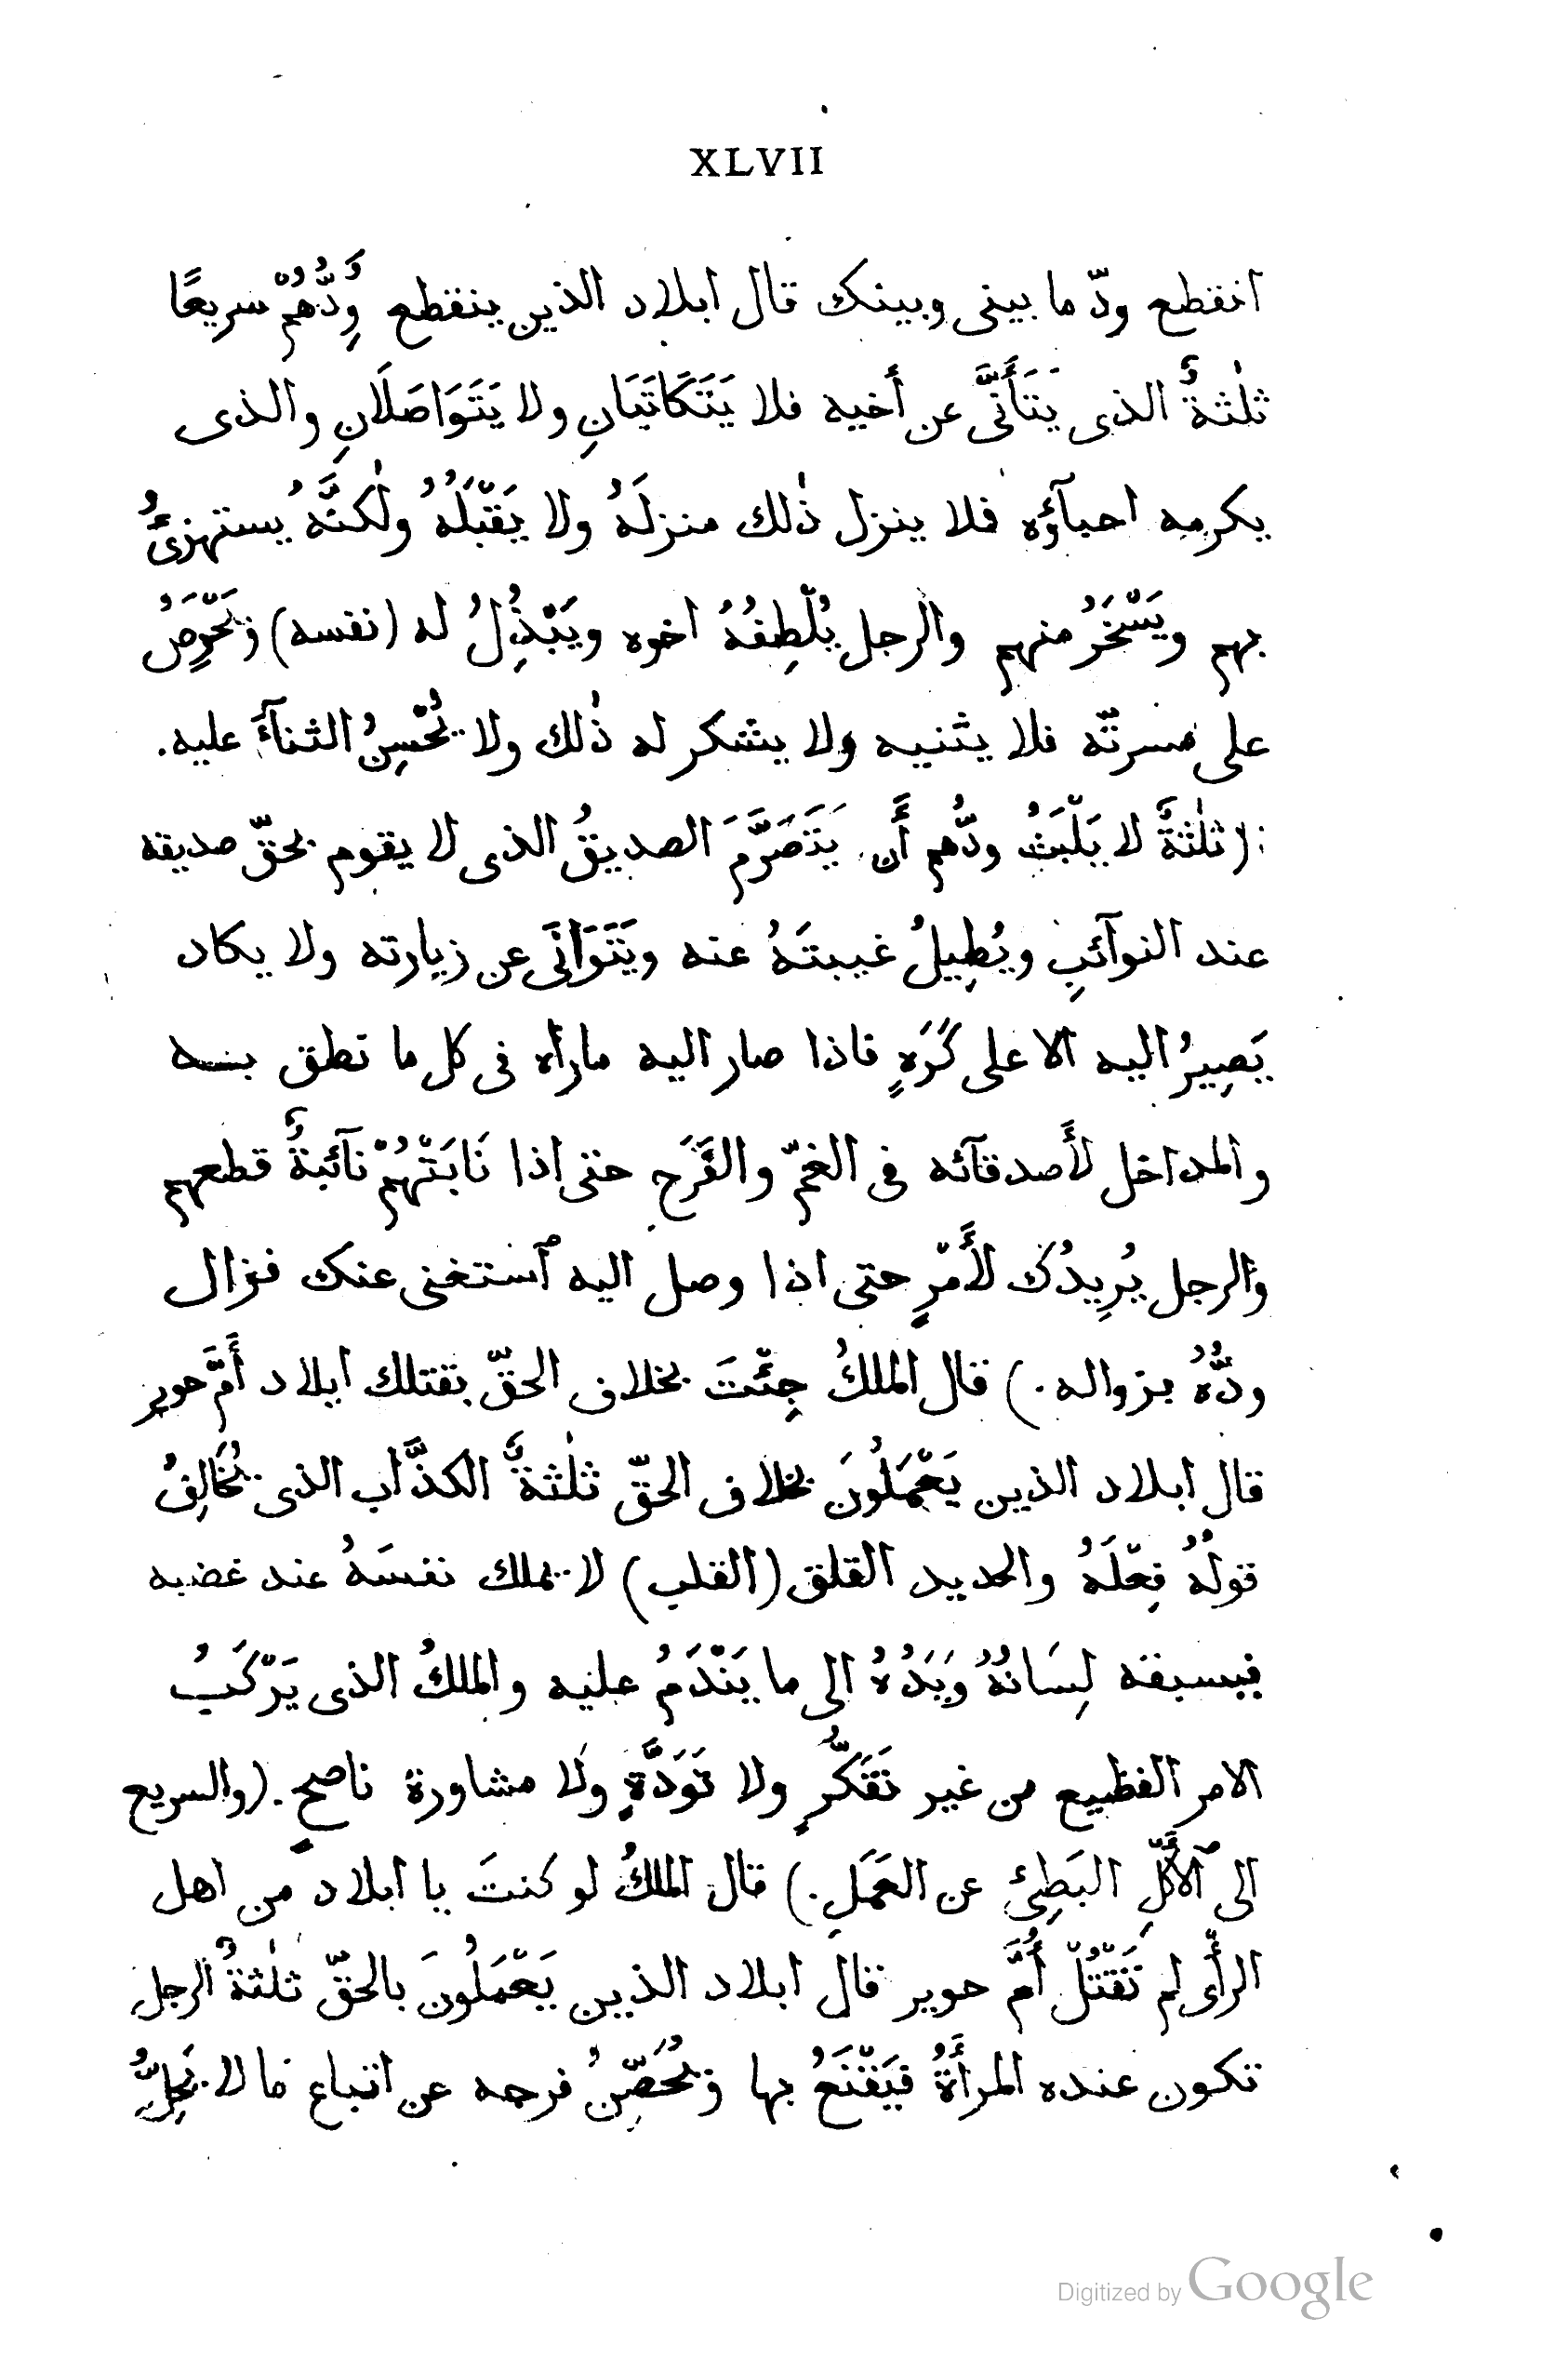 XLVII
انقطع ودّ ما بينى وبينك قال ابلاد الذين ينقطع وُِدُّهُمْ سريعًا
ثلٰثةٌ الذى يَتَأَنَّى عن أخيه فلا يَتَكَاتَبَانِ ولا يَتَوَاصَلَانِ والذى
يكرمه احبآؤه فلا ينزل ذٰلك منزلَهُ ولا يَقْبَلُهُ ولٰكنَّه يستهزئُ
بهم ويَسْخَرُ منهم والرجل يُلْطِفُهُ اخوه ويَبْذُِلُ له (نفسه) ويَحْرِصُ
على مسرّته فلا يثنيه ولا يشكر له ذٰلك ولا يُحْسِنُ الثنآءَ عليه.
(ثلٰثةٌ لا يَلْبَثُ ودُّهم أَن يَتَصَرَّمَ الصديقُ الذى لا يقوم بحقّ صديقه
عند النوآئبِ ويُطِيلُ غيبتَهُ عنه ويَتَوَانَى عن زيارته ولا يكاد
يَصِيرُ اليه الا على كُرَهٍ فاذا صار اليه ماراه فى كل ما نطق بـه
والمداخل لأَصدقآئه فى الغمّ والفَرَحِ حتى اذا نَابَتْهُمْ نآئبةٌ قطعهم
والرجل يُرِيدُكَ لأَمْرٍ حتى اذا وصل اليه ٱستغنى عنك فزال
ودُّهُ بزواله.) قال الملكُ جِئْتَ بخلاف الحقّ بقتلك ابلاد أَمَّ حوير
قال ابلاد الذين يَعْمَلُونَ بخلاف الحقّ ثلٰثةٌ الكذَّاب الذى يُخَالِفُ
قولُهُ فِعْلَهُ والحديد القلق (القلب) لا يملك نفسَهُ عند غضبه
فيسبقه لِسَانُهُ وَيَدُهُ الى ما يَنْدَمُ عليه والملكُ الذى يَرْكَبُ
الامر الفظيع من غير تَفَكُّرٍ ولا تَوَدَّةٍ ولا مشاورة ناصحٍ. (والسريع
الى ٱلأَكْلِ البَطِئِ عن العَمَلِ.) قال الملكُ لو كنتَ يا ابلاد من اهل
الرأْى لم تَقْتُلْ أُمَّ حوير قال ابلاد الذين يَعْمَلُونَ بالحقّ ثلٰثةٌ الرجل
تكون عنده المرأَةُ فيَقْنَعُ بها ويُحْصِنُ فرجه عن اتباع ما لا يَحِلُّ
Digitized by Google